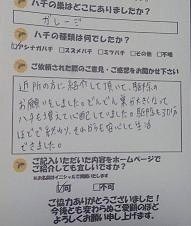 ハチの巣はどこにありましたか?
ガレージ
ハチの種類は何でしたか?
☑アシナガバチ □スズメバチ □ミツバチ □その他 □不明
ご依頼された際のご意見・ご感想をお聞かせ下さい
近所の方に紹介して頂いて、駆除の
お願いをしました。どんどん巣が大きくなって
ハチも増えていて心配していました。駆除も30分
ほどで終わり、それからも安心して生活
できました。
ご記入いただいた内容をホームページで
ご紹介しても宜しいですか?
☑可 □不可
ご協力ありがとうございました!
今後とも変わらぬご愛顧のほど
よろしくお願い申し上げます。